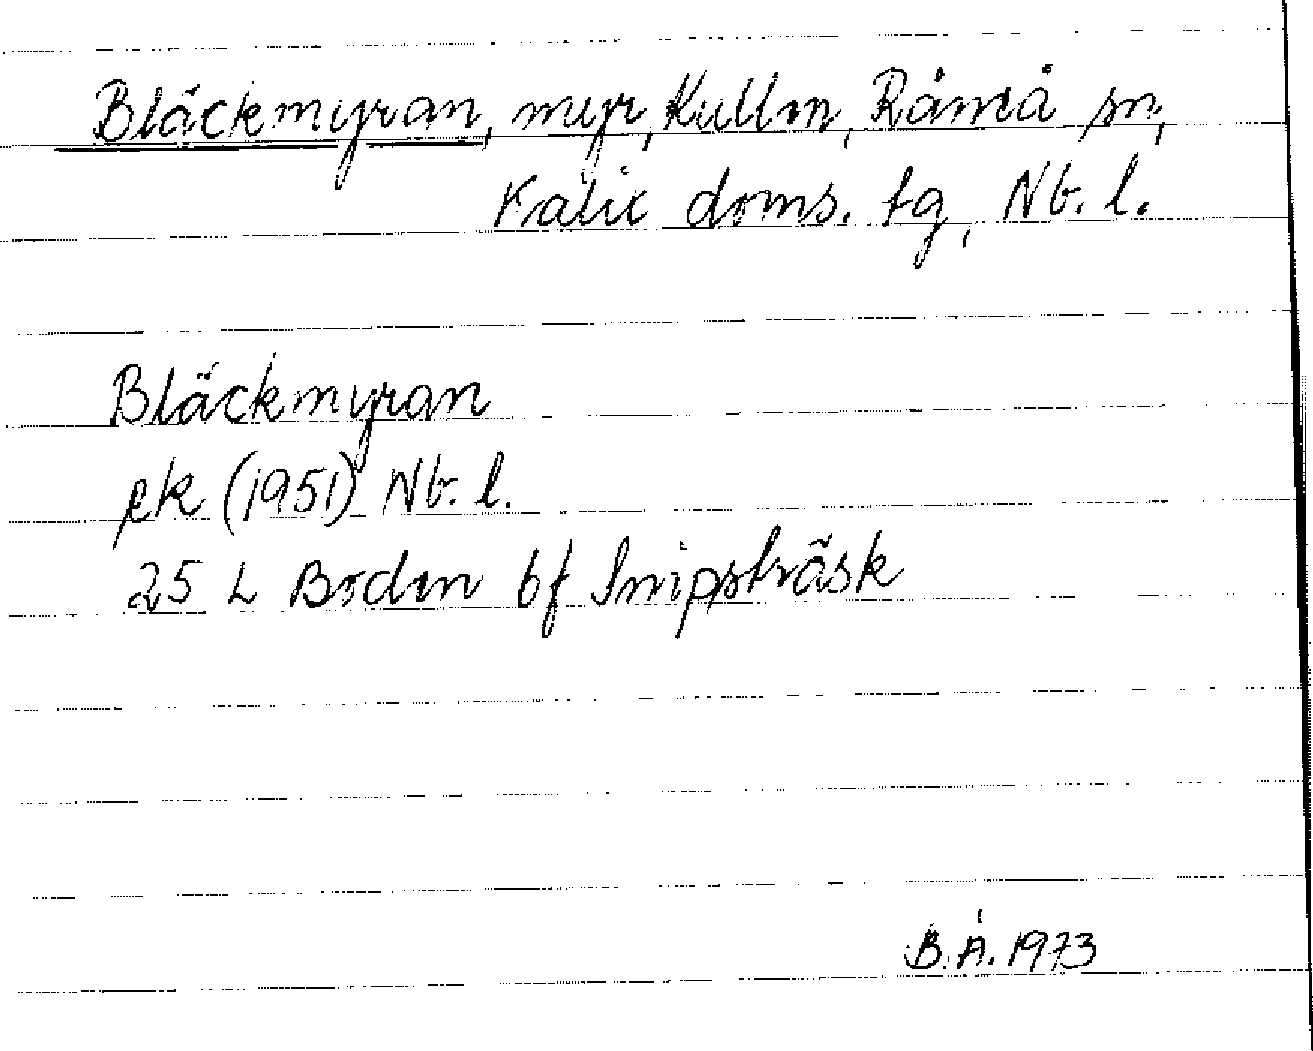 Bläckmyran, myr, Kullen, Råneå sn,
Kalix doms. tg, Nb. l.
Bläckmyran
ek (1951) Nb. l.
25 L Boden bf Snipsträsk
B.Å. 1973